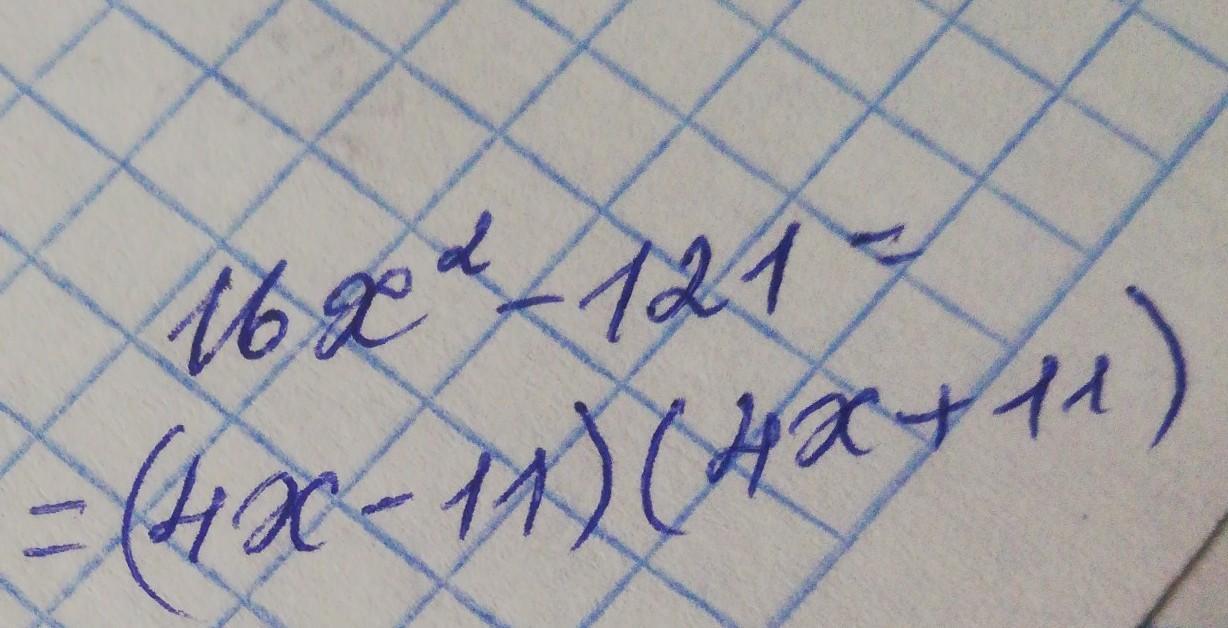 16x² - 121 =
= (4x - 11)(4x + 11)